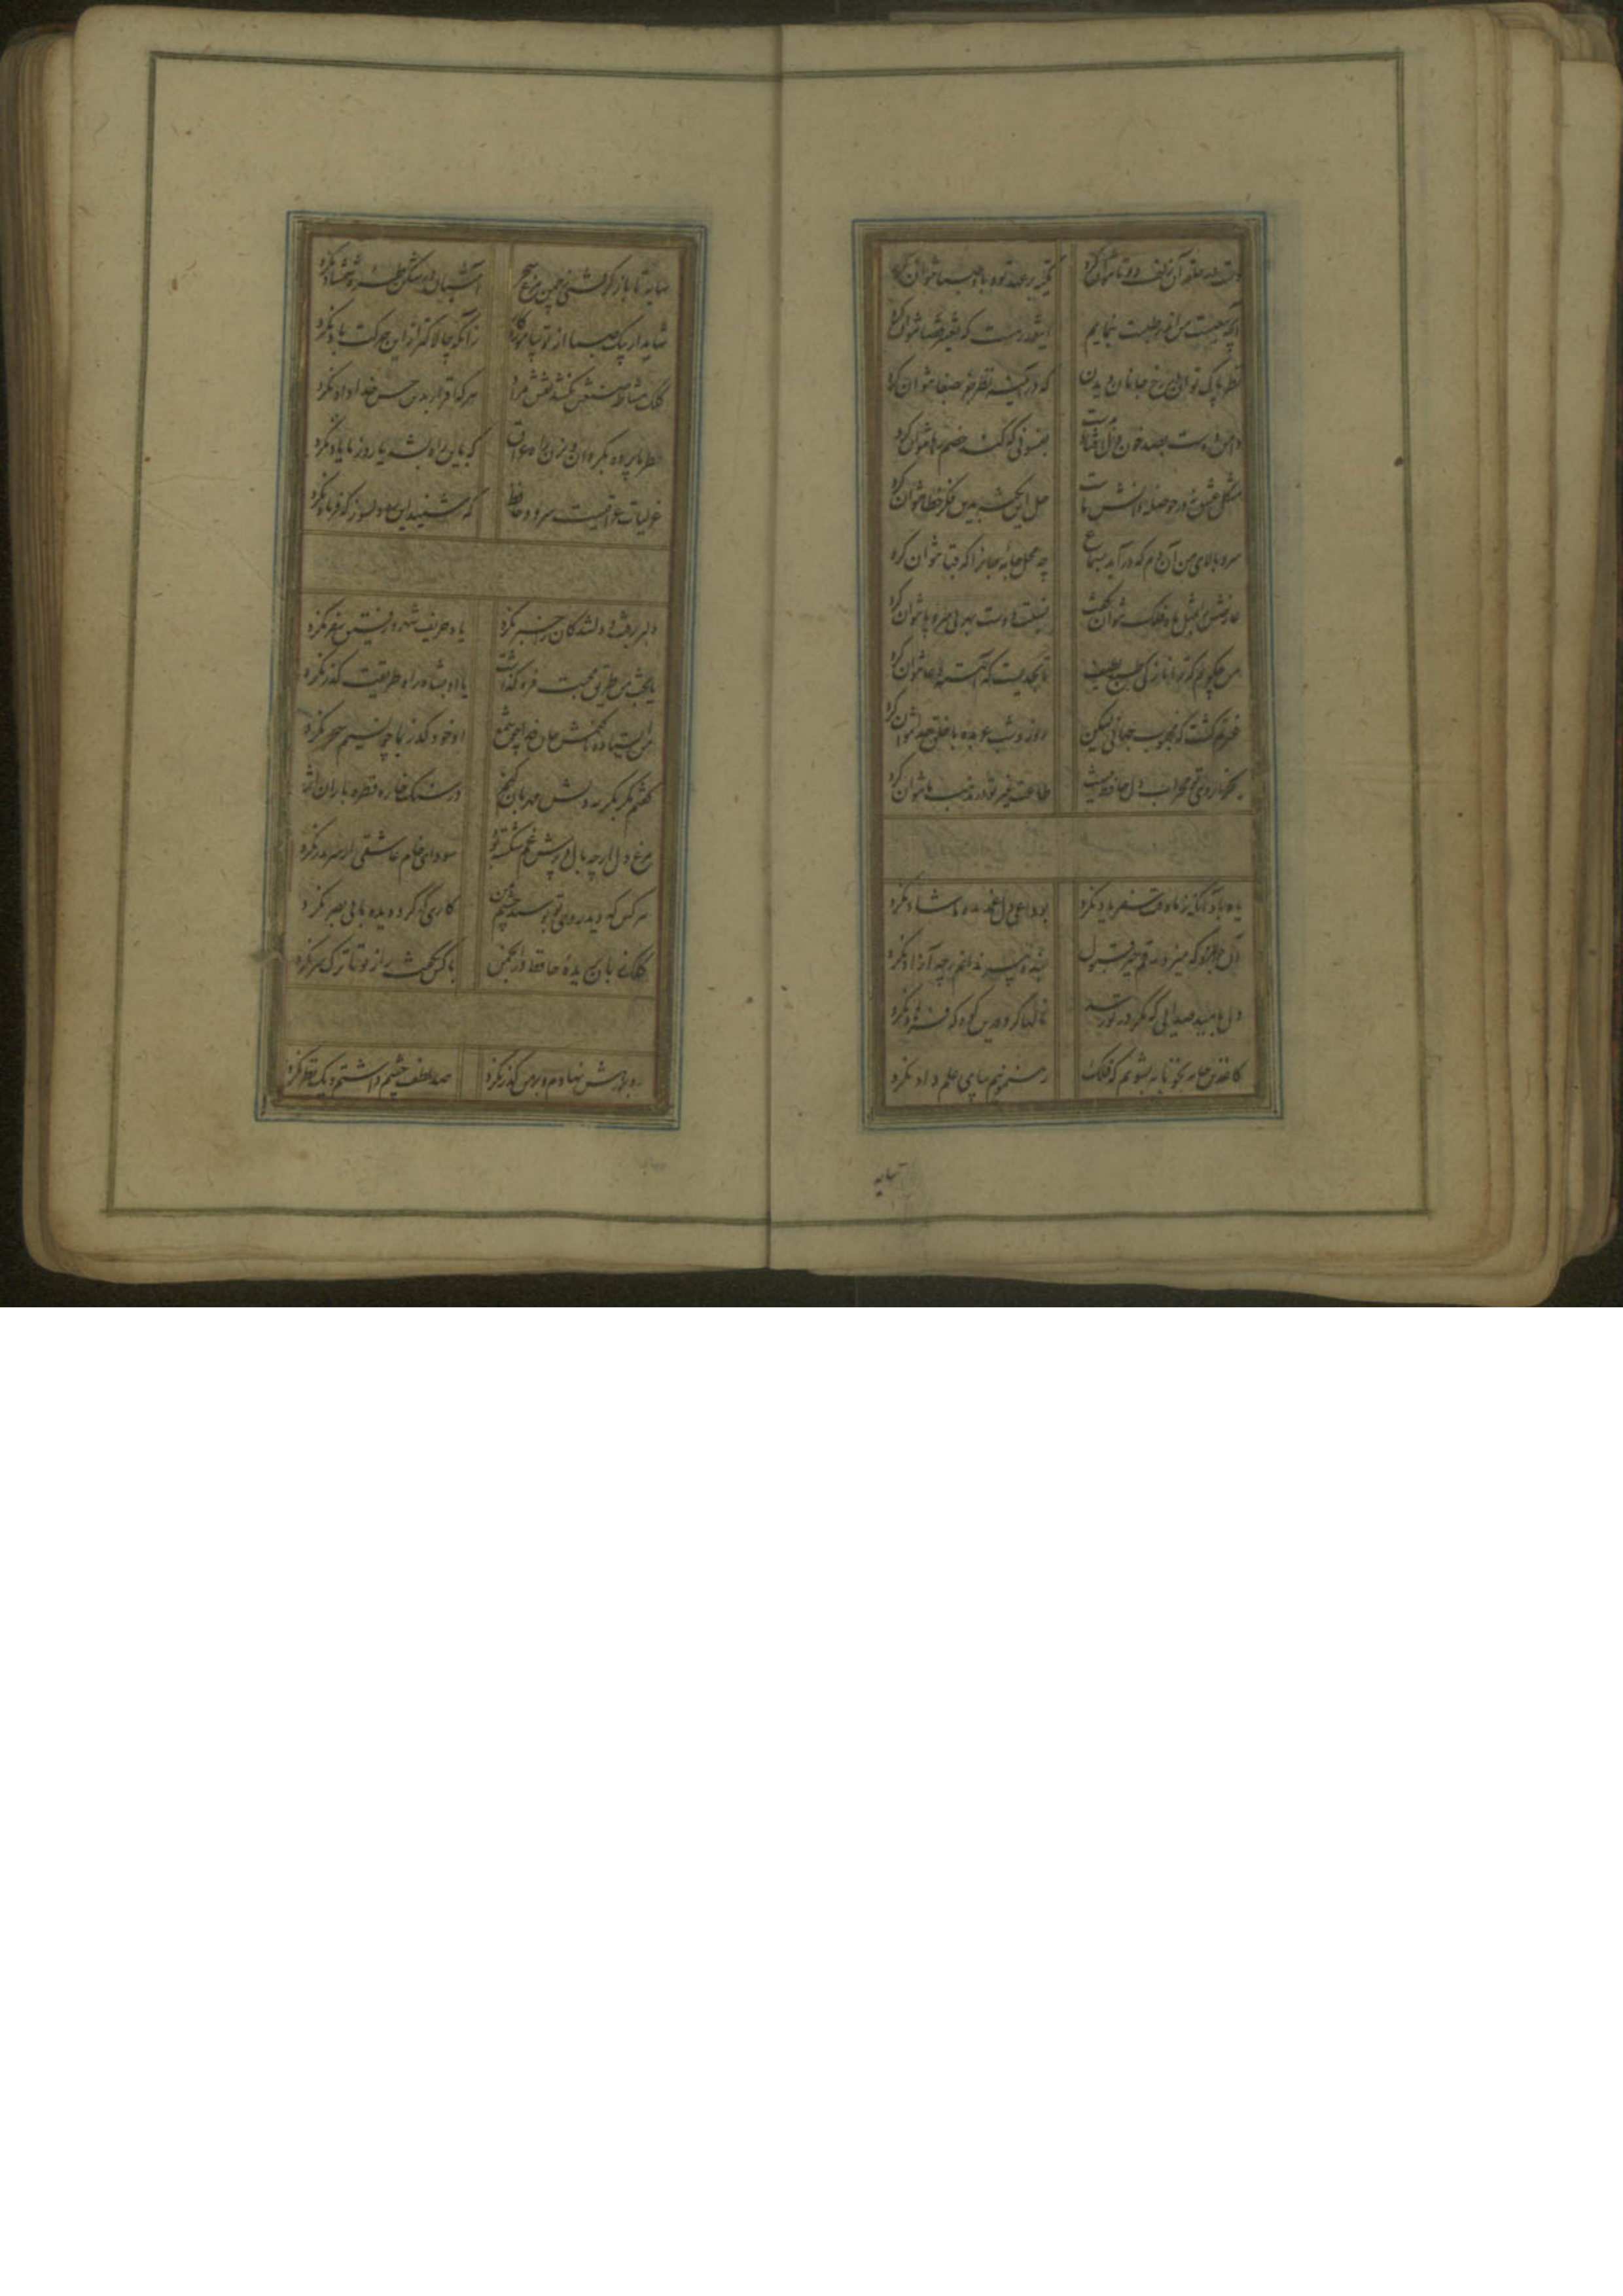 دست در حلقه آن زلف دوتا نتوان کرد
تکیه بر عهد تو و باد صبا نتوان کرد
آنچه سعیست من اندر طلبت بنمایم
اینقدر هست که تغییر قضا نتوان کرد
نظر پاک تواند رخ جانان دیدن
که در آئینه نظر جز بصفا نتوان کرد
دامن دوست بصد خون دل افتاد بدست
بفسوسی که کند خصم رها نتوان کرد
مشکل عشق نه در حوصله دانش ماست
حل این نکته بدین فکر خطا نتوان کرد
سرو بالای من آن دم که در آید بسماع
چه محل جامه جانرا که قبا نتوان کرد
عارضش را بمثل ماه فلک نتوان گفت
نسبت دوست بهر بی سر و پا نتوان کرد
من چگویم که ترا نازکی طبع لطیف
تا بحدیست که آهسته دعا نتوان کرد
غیرتم کشت که محبوب جهانی لیکن
روز و شب عربده با خلق خدا نتوان کرد
بجز ابروی تو محراب دل حافظ نیست
طاعت غیر تو در مذهب ما نتوان کرد
یاد باد آنکه ز ما وقت سفر یاد نکرد
بوداعی دل غمدیده ما شاد نکرد
آن جوانبخت که میزد رقم خیر قبول
بنده پیر ندانم ز چه آزاد نکرد
دل بامید صدایی که مگر در تو رسد
نالها کرد درین کوه که فرهاد نکرد
کاغذین جامه بخونابه بشویم که فلک
رهنمونیم بپای علم داد نکرد
سایه
سایه تا باز گرفتی ز چمن مرغ سحر
آشیان در شکن طره شمشاد نکرد
شاید ار پیک صبا از تو بیاموزد کار
زانکه چالاکتر از این حرکت باد نکرد
کلک مشاطه صنعش نکشد نقش مراد
هر که اقرار بدین حسن خداداد نکرد
مطربا پرده بگردان و بزن راه عراق
که باین راه بشد یار و ز ما یاد نکرد
غزلیات عراقیست سرود حافظ
که شنید این ره دلسوز که فریاد نکرد
دلبر برفت و دلشدگان را خبر نکرد
یاد حریف شهر و رفیق سفر نکرد
یا بخت من طریق محبت فرو گذاشت
یا او بشاهراه طریقت گذر نکرد
من ایستاده تا کنمش جان فدا چو شمع
او خود گذر بما چو نسیم سحر نکرد
گفتم مگر بگریه دلش مهربان کنم
در سنگ خاره قطره باران اثر
مرغ دل ار چه بال و پرش غم شکسته بود
سودای خام عاشقی از سر بدر نکرد
هر کس که دید روی تو بوسید چشم من
کاری که کرد دیده ما بی بصر نکرد
کلک زبان بریده حافظ در انجمن
با کس نگفت راز تو تا ترک سر نکرد
رو بر رهش نهادم و بر من گذر نکرد
صد لطف چشم داشتم و یک نظر نکرد